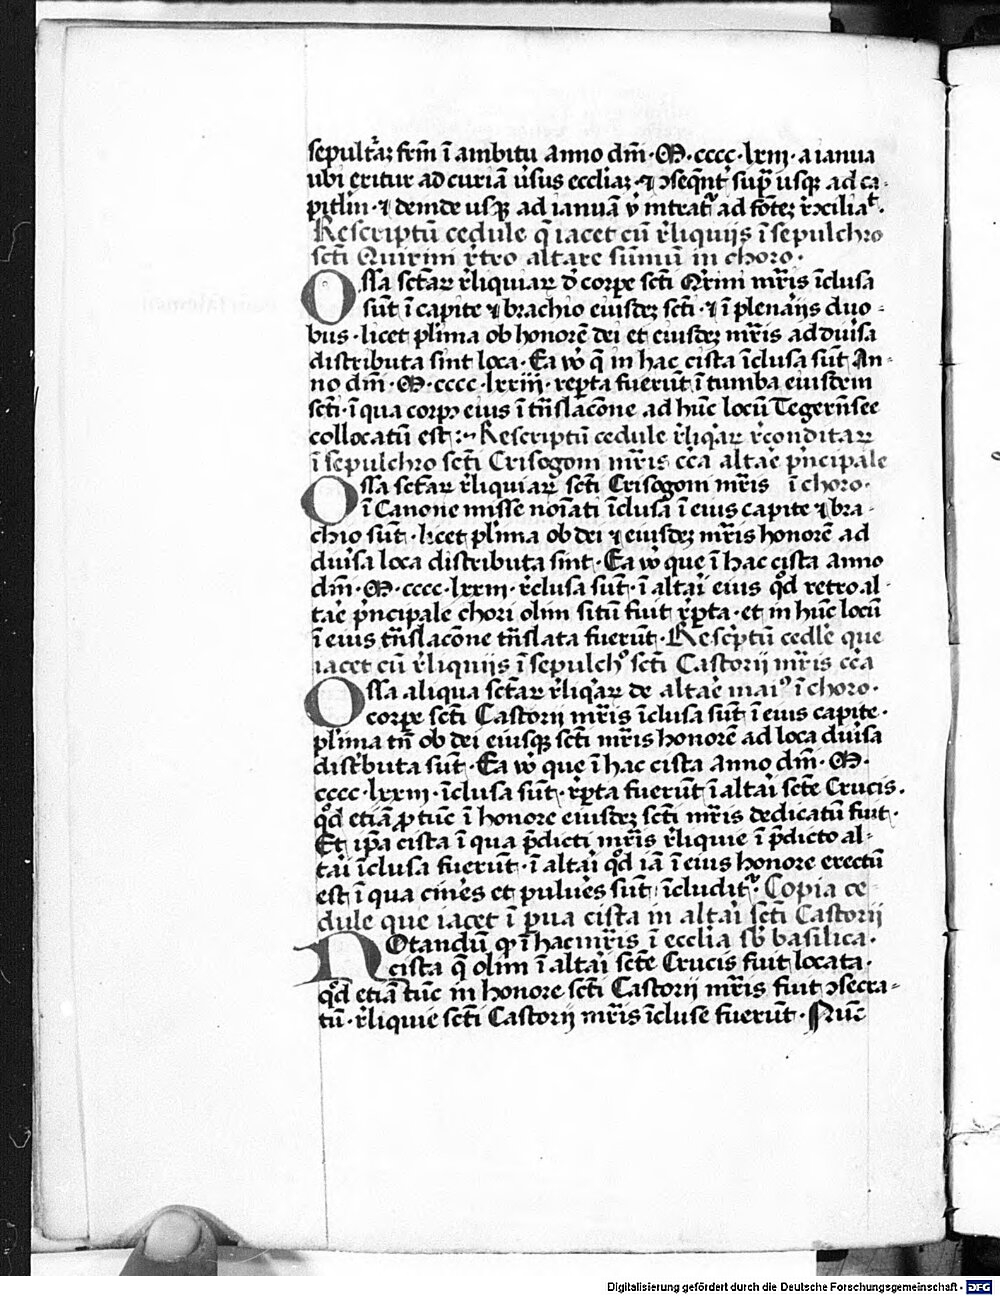 sepultaꝝ frm̄ ī ambitu anno dm̄ · M · cccc · lxiij · a ianua
ubi exitur ad curiā ꝟsus eccliaꝫ · ⁊ ꝯseqn̄t suꝑ usqꝫ ad ca-
pitlm̄ · ⁊ deinde usqꝫ ad ianuā ꝟ intrat᷑ ad fōteꝫ
Rescriptū cedule q̄ iacet cū rͥliquijs ī sepulchro
scti Quirini rͥtro altare sūmū in choro ·
Ossa sctaꝝ rͥliquiaꝝ d̄ corꝑe scti Qͥrini mr̄is īclusa
sūt ī capite ⁊ brachio eiusdeꝫ scti · ⁊ ī plenarijs duo-
bus · licet pl̄ima ob honorē dei et eiusdeꝫ mr̄is ad diūsa
distributa sint loca · Ea ꝟo q̄ in hac cista īclusa sūt An-
no dm̄ · M · cccc · lxxiij · reꝑta fuerūt ī tumba eiusdem
scti · ī qua corpꝰ eius ī tn̄slacōne ad hūc locū Tegern̄see
collocatū est :~ Rescriptū cedule rͥliqͥaꝝ rͥconditaꝝ
ī sepulchro scti Crisogoni mr̄is cͥca altare pͥncipale
Ossa sctaꝝ rͥliquiaꝝ scti Crisogoni mr̄is ī choro ·
ī Canone misse noīati īclusa ī eius capite ⁊ bra-
chio sūt · licet pl̄ima ob dei ⁊ eiusdeꝫ mr̄is honorē ad
diūsa loca distributa sint · Ea ꝟo que ī hac cista anno
dm̄ · M · cccc · lxxiij · rͥclusa sūt · ī altari eius qd̄ retro al-
tare pͥncipale chori olim sitū fuit rͥꝑta · et in hūc locū
ī eius tn̄slacōne tn̄slata fuerūt · Rescͥptū cedle que
iacet cū rͥliquijs ī sepulchͦ scti Castorij mr̄is cͥca
Ossa aliqua sctaꝝ rͥliqͥaꝝ de altare maiꝰ ī choro ·
corꝑe scti Castorij mr̄is īclusa sūt ī eius capite ·
pl̄ima tn̄ ob dei eiusqꝫ scti mr̄is honorē ad loca diūsa
distͥbuta sūt · Ea ꝟo que ī hac cista anno dm̄ · M ·
cccc · lxxiij · īclusa sūt · rͥꝑta fuerūt ī altari scte Crucis ·
qd̄ etiā ꝓ tūc ī honore eiusdeꝫ scti mr̄is dedicatū fuit ·
Et ip̄a cista ī qua p̄dicti mr̄is rͥliquie ī p̄dicto al-
tari īclusa fuerūt · ī altari qd̄ iā ī eius honore erectū
est ī qua cineͥs et pulueͥs sūt īcludit᷑ · Copia ce-
dule que iacet ī pua cista in altari scti Castorij
Notandū ꝙ ī hac mr̄is ī ecclia sͥ basilica ·
cista q̄ olim ī altari scte Crucis fuit locata ·
qd̄ etiā tūc in honore scti Castorij mr̄is fuit ꝯsecra-
tū · rͥliquie scti Castorij mr̄is īcluse fuerūt · Nūc
Digitalisierung gefördert durch die Deutsche Forschungsgemeinschaft - DFG